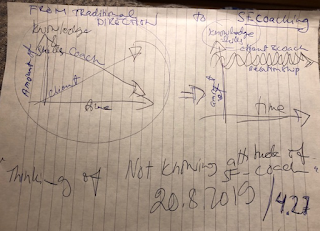 FROM TRADITIONAL
DIRECTION
to SF-Coaching
Knowledge
Skills Coach
Amount of
Client
time
Knowledge
skills
client & coach
relationship
TIME
"Thinking of Not knowing attitude of
SF-coach"
20.8.2019 / 4.27